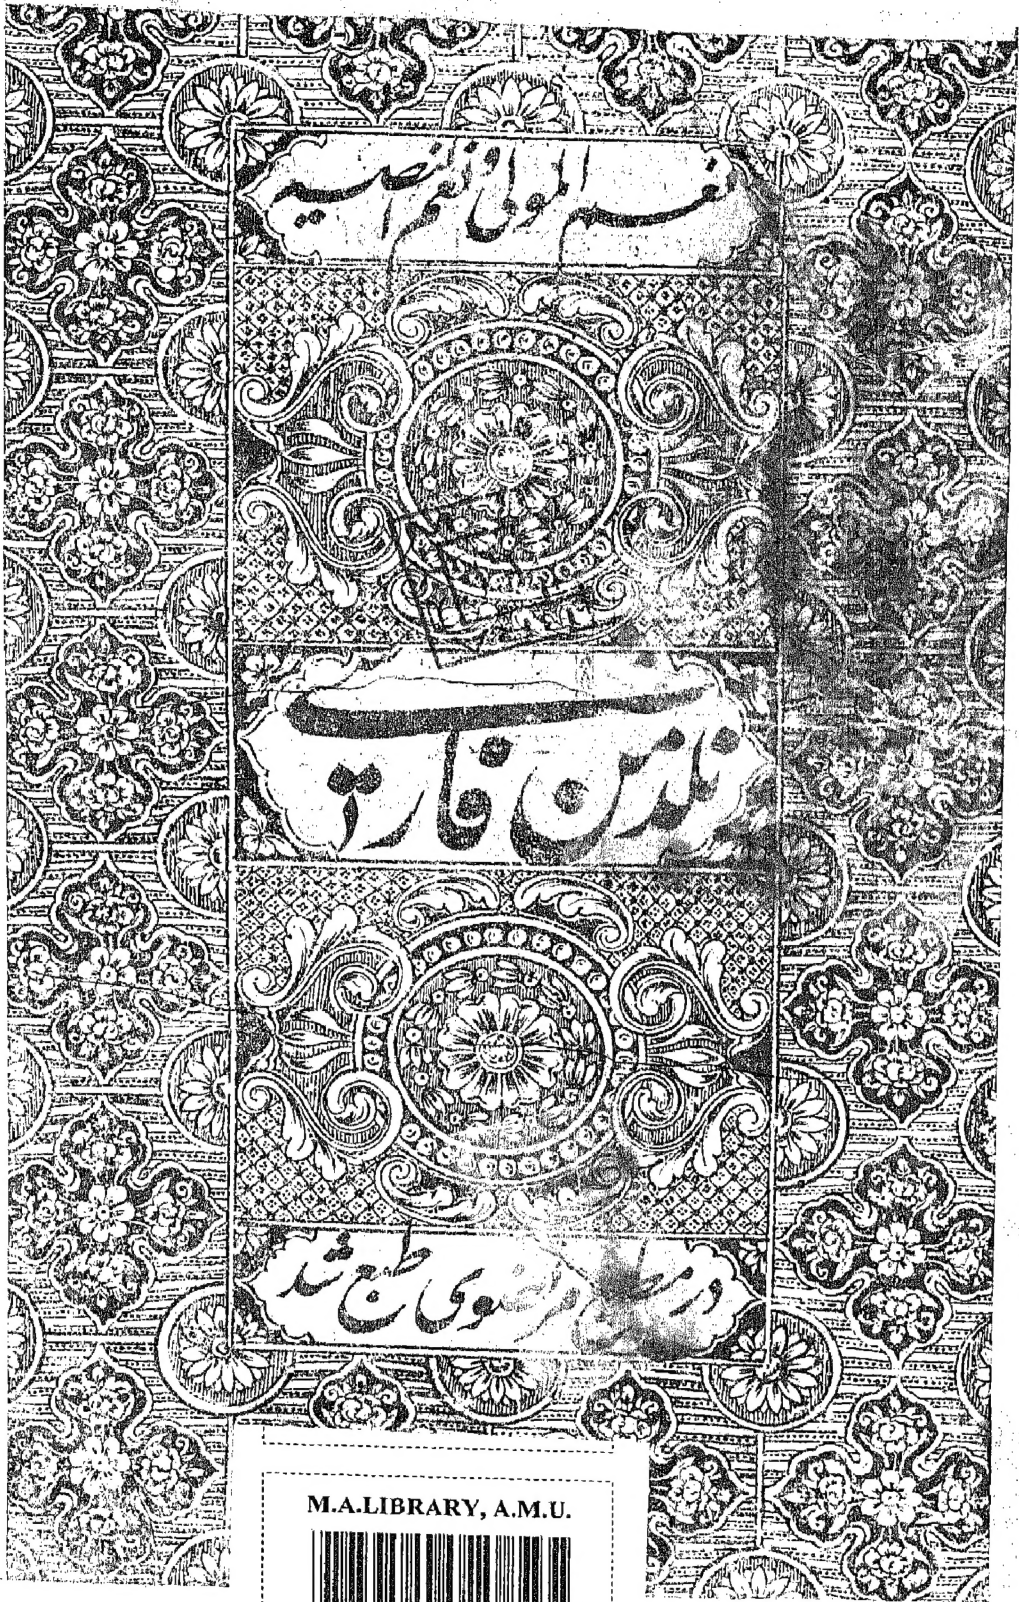 نعم المولی و نعم النصیر
نل دمن فارسی
در مطبع مرتضوی طبع شد
M.A.LIBRARY, A.M.U.